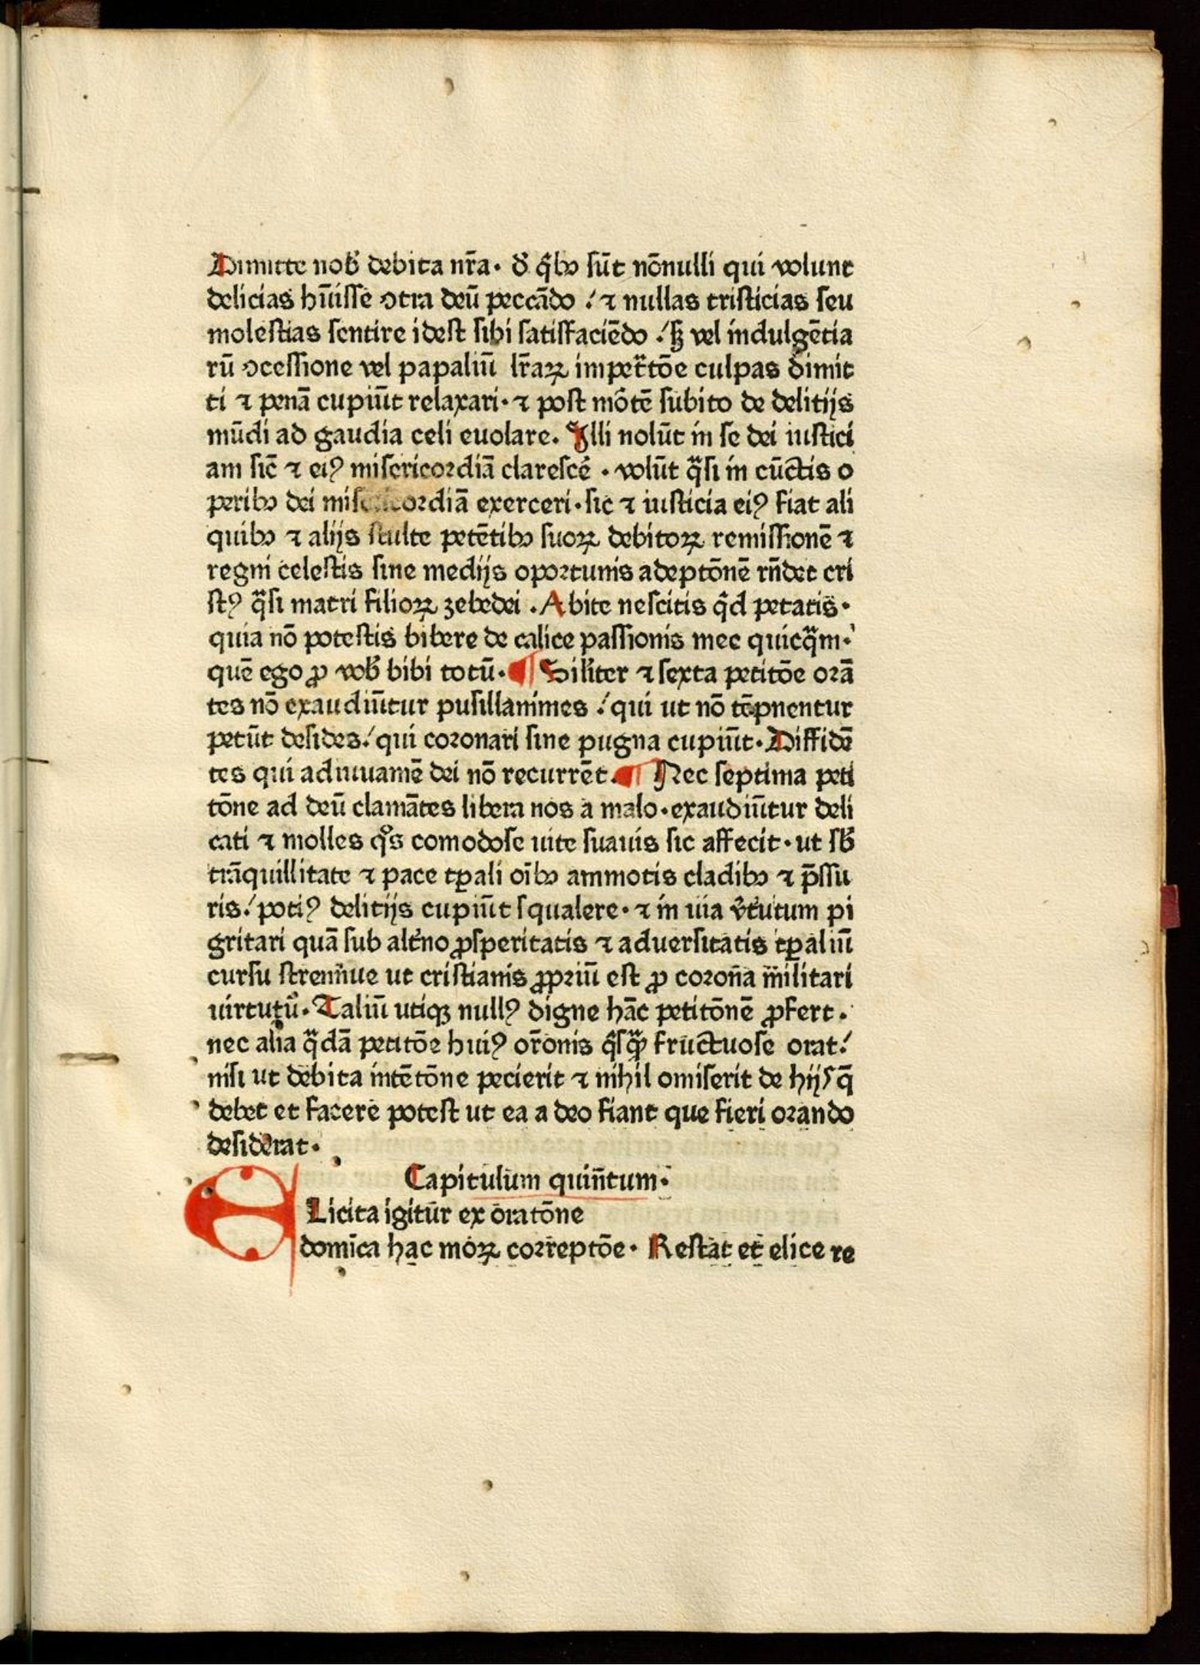 Dimitte nob̄ debita nr̄a· d̄ q̄ibꝫ sūt nōnulli qui volunt
delicias hūisse ↄtra deū peccādo / ⁊ nullas tristicias seu
molestias sentire idest sibi satisfaciēdo / sꝫ vel indulgētia
rū ↄcessione vel papaliū lr̄aꝝ impert̄ōe culpas dimit
ti ⁊ penā cupiūt relaxari· ⁊ post mōtē subito de delitijs
mūdi ad gaudia celi euolare. Illi nolūt in se dei iustici
am sic̄ ⁊ eiꝰ misericordiā clarescē · volūt q̄si in cūctis o
peribꝫ dei misericordiā exerceri· sic ⁊ iusticia eiꝰ fiat ali
quibꝫ ⁊ alijs stulte petētibꝫ suoꝝ debitoꝝ remissionē ⁊
regni celestis sine medijs oportunis adeptōnē rn̄det cri
stꝰ q̄si matri filioꝝ zebedei . Abite nescitis qd̄ petatis·
quia nō potestis bibere de calice passionis mee quicq̄m·
quē ego ꝓ vob̄ bibi totū· ¶ Sili̅ter ⁊ sexta petitōe orā
tes nō exaudiūtur pusillanimes / qui ut nō tēpnentur
petūt desides / qui coronari sine pugna cupiūt· Diffidē
tes qui adiuuamē dei nō recurrēt. ¶ Nec septima peti
tōne ad deū clamātes libera nos a malo· exaudiūtur deli
cati ⁊ molles qͦs comodose uite suauis sic affecit· ut sb̄
trāquillitate ⁊ pace tꝑali oībꝫ ammotis cladibꝫ ⁊ p̄ssu
ris / potiꝰ delitijs cupiūt squalere· ⁊ in uia v̄tutum pi
gritari quā sub alt̄no ꝓsperitatis ⁊ aduersitatis tꝑaliū
cursu strennue ut cristianis ꝓpriū est ꝓ corona militari
uirtutū· Taliū utiqꝫ nullꝰ digne hāc petitōnē ꝓfert .
nec alia q̄dā petitōe huiꝰ or̄onis q̄sq̄ꝫ fructuose orat /
nisi ut debita intētōne pecierit ⁊ nihil omiserit de hijs q̄
debet et facere potest ut ea a deo fiant que fieri orando
desiderat·
Capitulum quintum·
ELicita igitur ex oratōne
domīca hac moꝝ correptōe· Restat et elice re